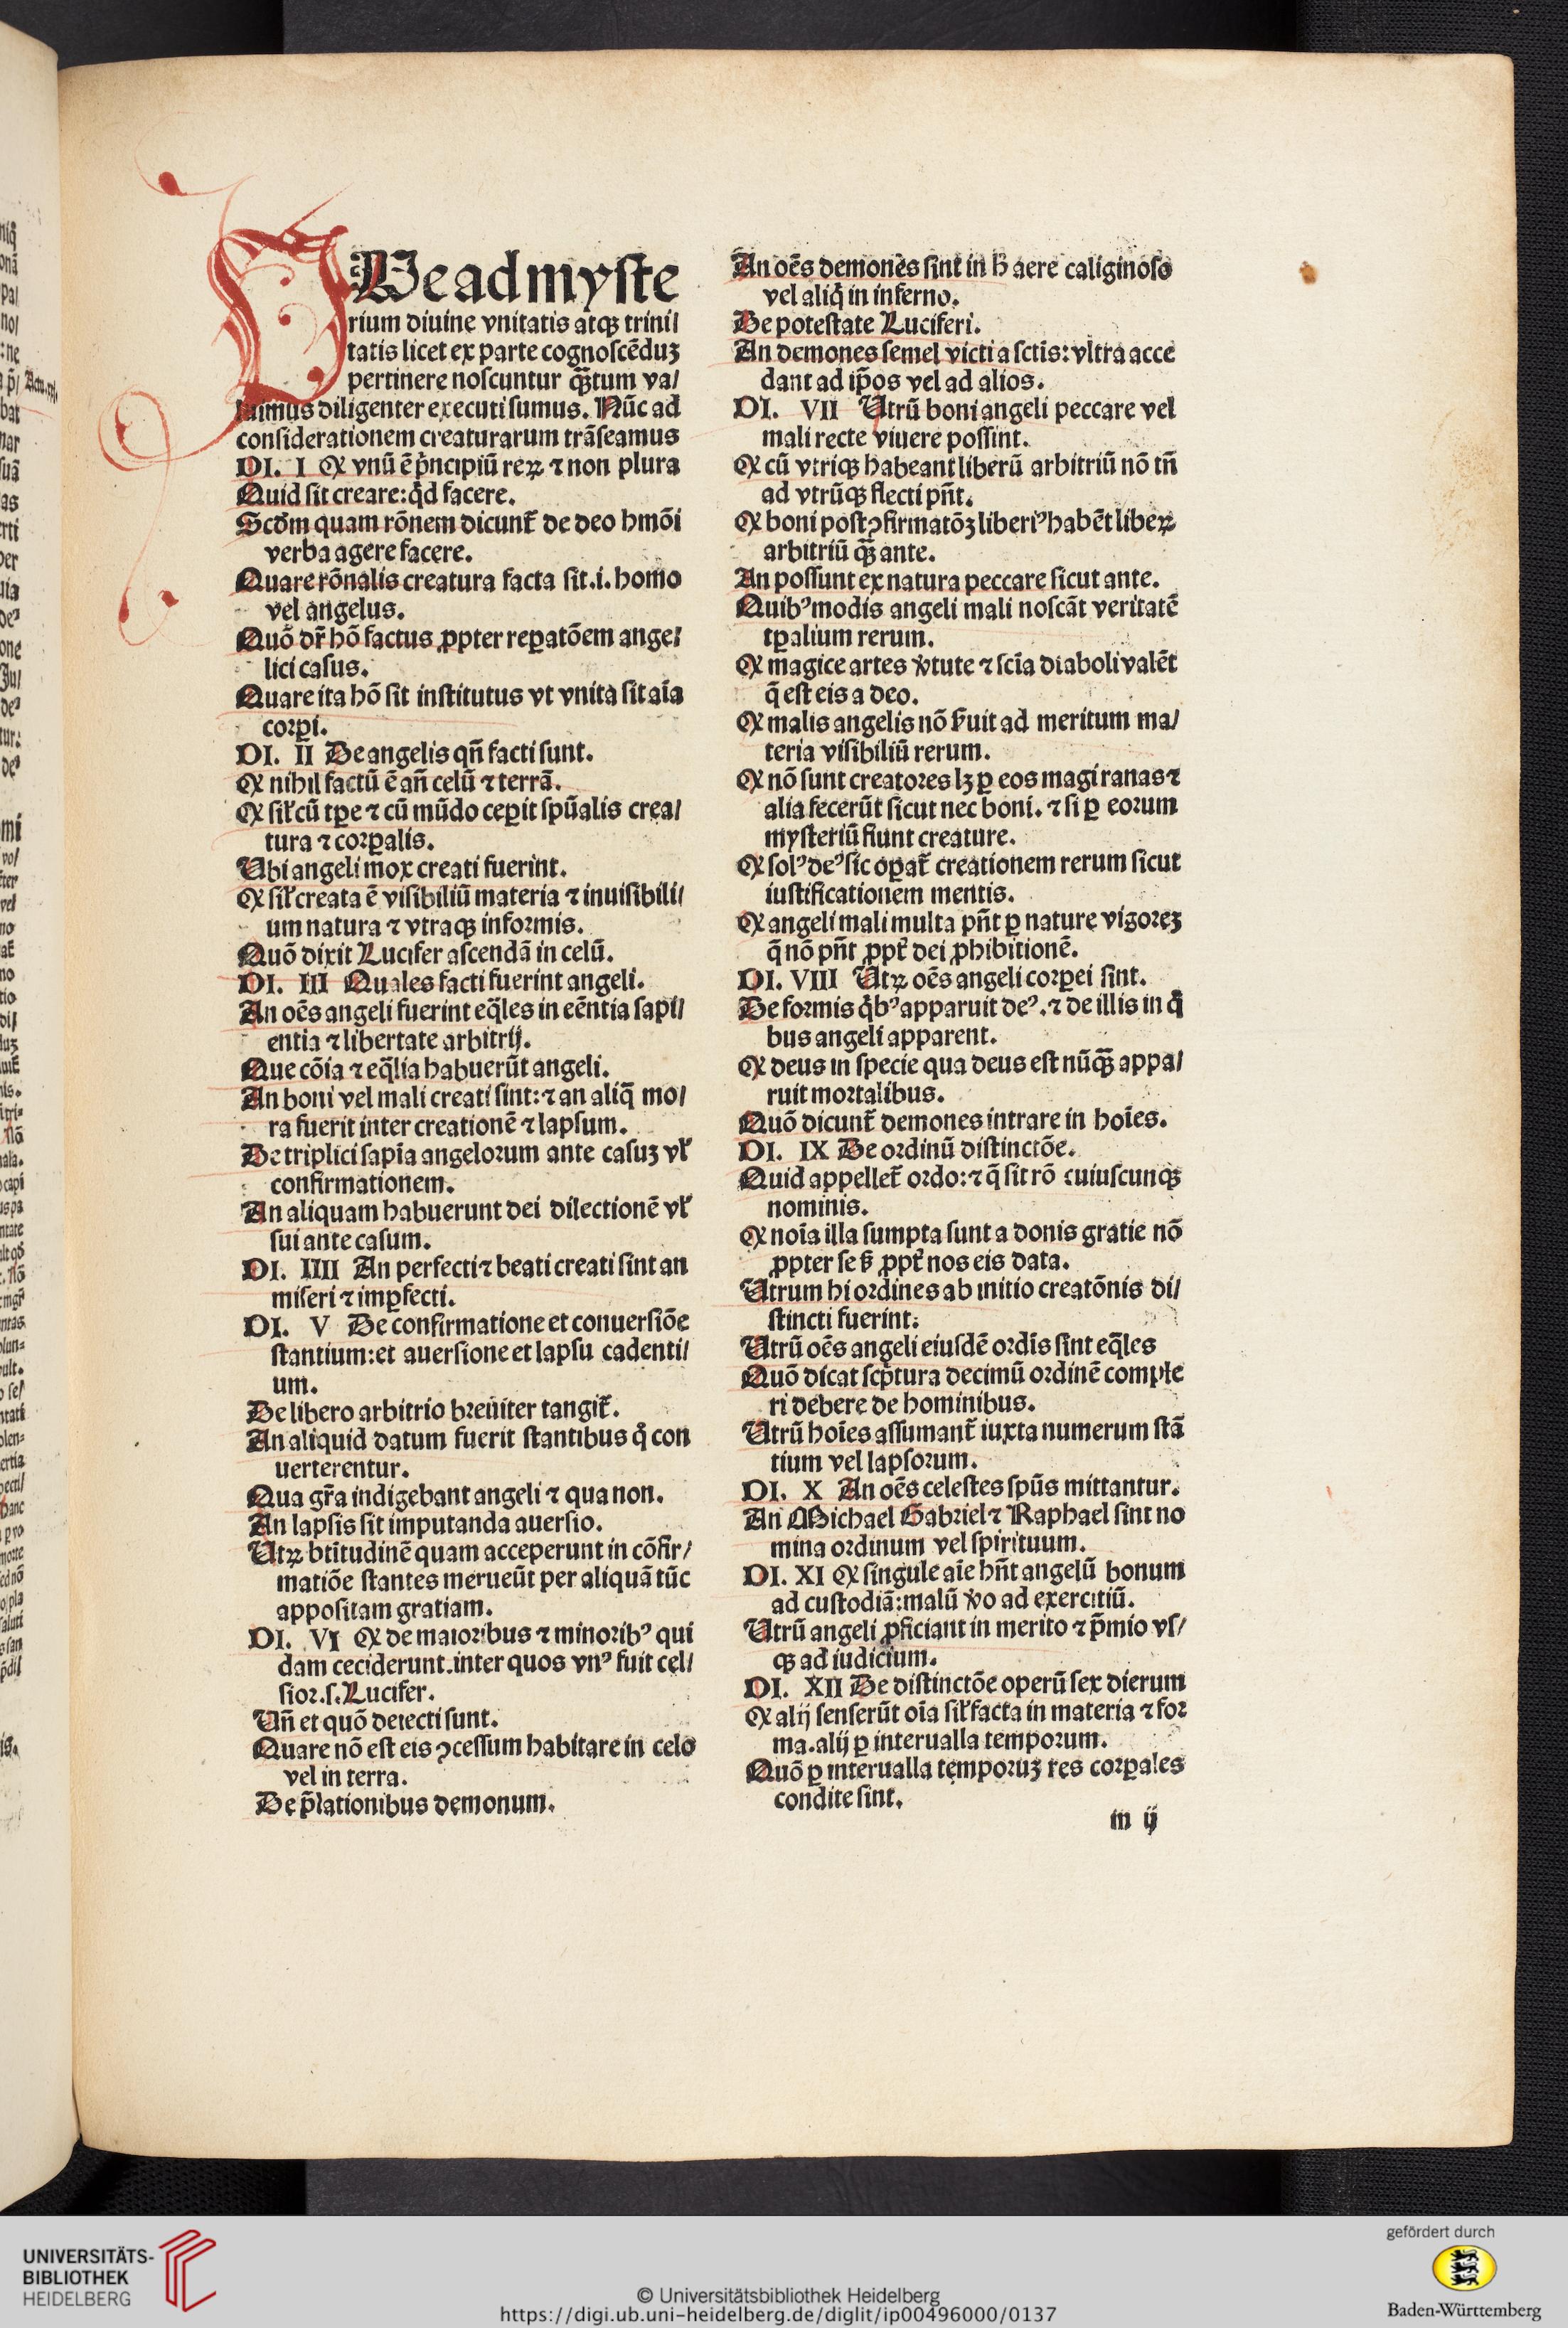 Ve ad myste
rium diuine vnitatis atqꝫ trini/
tatis licet ex parte cognoscēduꝫ
pertinere noscuntur qͣꝫtum va/
luimus diligenter executi sumus. Nūc ad
considerationem creaturarum trāseamus
DI. I Ꝙ vnū ē pͥncipiū reꝝ ⁊ non plura
Quid sit creare: qͥd facere.
Scḋm quam rōnem dicunt̄ de deo hmōi
verba agere facere.
Quare rōnalis creatura facta sit .i. homo
vel angelus.
Quō dr̄ hō factus ꝓpter reꝑatōem ange/
lici casus.
Quare ita hō sit institutus vt vnita sit aīa
corꝑi.
DI. II De angelis qn̄ facti sunt.
Ꝙ nihil factū ē an̄ celū ⁊ terrā.
Ꝙ sil̓ cū tꝑe ⁊ cū mūdo ceꝑit spūalis crea/
tura ⁊ corꝑalis.
Ubi angeli mox creati fuerint.
Ꝙ sil̓ creata ē visibiliū materia ⁊ inuisibili/
um natura ⁊ vtraqꝫ informis.
Quō dixit Lucifer ascendā in celū.
DI. III Quales facti fuerint angeli.
An oēs angeli fuerint eq̄les in eēntia sapi/
entia ⁊ libertate arbitrij.
Que cōia ⁊ eq̄lia habuerūt angeli.
An boni vel mali creati sint: ⁊ an aliq̄ mo/
ra fuerit inter creationē ⁊ lapsum.
De triplici sapīa angelorum ante casuꝫ vl̓
confirmationem.
An aliquam habuerunt dei dilectionē vl̓
sui ante casum.
DI. IIII An perfecti ⁊ beati creati sint an
miseri ⁊ imꝑfecti.
DI. V De confirmatione et conuersiōe
stantium: et auersione et lapsu cadenti/
um.
De libero arbitrio breuiter tangit̄.
An aliquid datum fuerit stantibus qͦ con
uerterentur.
Qua gr̄a indigebant angeli ⁊ qua non.
An lapsis sit imputanda auersio.
Utꝝ btītudinē quam acceperunt in cōfir/
matiōe stantes merueūt per aliquā tūc
appositam gratiam.
DI. VI Ꝙ de maioribus ⁊ minorib⁹ qui
dam ceciderunt. inter quos vn⁹ fuit cel/
sior .s. Lucifer.
Un̄ et quō deiecti sunt.
Quare nō est eis ꝯcessum habitare in celo
vel in terra.
De p̄lationibus demonum.
An oēs demones sint in h̄ aere caliginoso
vel aliqͥ in inferno.
De potestate Luciferi.
An demones semel victi a sctīs: vltra acce
dant ad ip̄os vel ad alios.
DI. VII Utrū boni angeli peccare vel
mali recte viuere possint.
Ꝙ cū vtriqꝫ habeant liberū arbitriū nō tn̄
ad vtrūqꝫ flecti pn̄t.
Ꝙ boni post ꝯfirmatōꝫ liberi⁹ habēt libeꝝ
arbitriū qͣꝫ ante.
An possunt ex natura peccare sicut ante.
Quib⁹ modis angeli mali noscāt veritatē
tꝑalium rerum.
Ꝙ magice artes v̓tute ⁊ scīa diaboli valēt
q̄ est eis a deo.
Ꝙ malis angelis nō ẜuit ad meritum ma/
teria visibiliū rerum.
Ꝙ nō sunt creatores lꝫ ꝑ eos magi ranas ⁊
alia fecerūt sicut nec boni. ⁊ si ꝑ eorum
mysteriū fiunt creature.
Ꝙ sol⁹ de⁹ sic oꝑat̄ creationem rerum sicut
iustificationem mentis.
Ꝙ angeli mali multa pn̄t ꝑ nature vigoreꝫ
q̄ nō pn̄t ꝓpt̄ dei ꝓhibitionē.
DI. VIII Utꝝ oēs angeli corꝑei sint.
De formis qͥb⁹ apparuit de⁹. ⁊ de illis in qͥ
bus angeli apparent.
Ꝙ deus in specie qua deus est nūqͣꝫ appa/
ruit mortalibus.
Quō dicunt̄ demones intrare in hoīes.
DI. IX De ordinū distinctōe.
Quid appellet̄ ordo: ⁊ q̄ sit rō cuiuscunqꝫ
nominis.
Ꝙ noīa illa sumpta sunt a donis gratie nō
ꝓpter se sꝫ ꝓpt̄ nos eis data.
Utrum hi ordines ab initio creatōnis di/
stincti fuerint.
Utrū oēs angeli eiusdē ordīs sint eq̄les
Quō dicat scpͥtura decimū ordinē comple
ri debere de hominibus.
Utrū hoīes assumant̄ iuxta numerum stā
tium vel lapsorum.
DI. X An oēs celestes spūs mittantur.
An Michael Gabriel ⁊ Raphael sint no
mina ordinum vel spirituum.
DI. XI Ꝙ singule aīe hn̄t angelū bonum
ad custodiā: malū v̓o ad exercitiū.
Utrū angeli ꝓficiant in merito ⁊ p̄mio vs/
qꝫ ad iudicium.
DI. XII De distinctōe operū sex dierum
Ꝙ alij senserūt oīa sil̓ facta in materia ⁊ for
ma. alij ꝑ interualla temporum.
Quō ꝑ interualla temporuꝫ res corꝑales
condite sint.
m ij
UNIVERSITÄTS-
BIBLIOTHEK
HEIDELBERG
© Universitätsbibliothek Heidelberg
https://digi.ub.uni-heidelberg.de/diglit/ip00496000/0137
gefördert durch
Baden-Württemberg